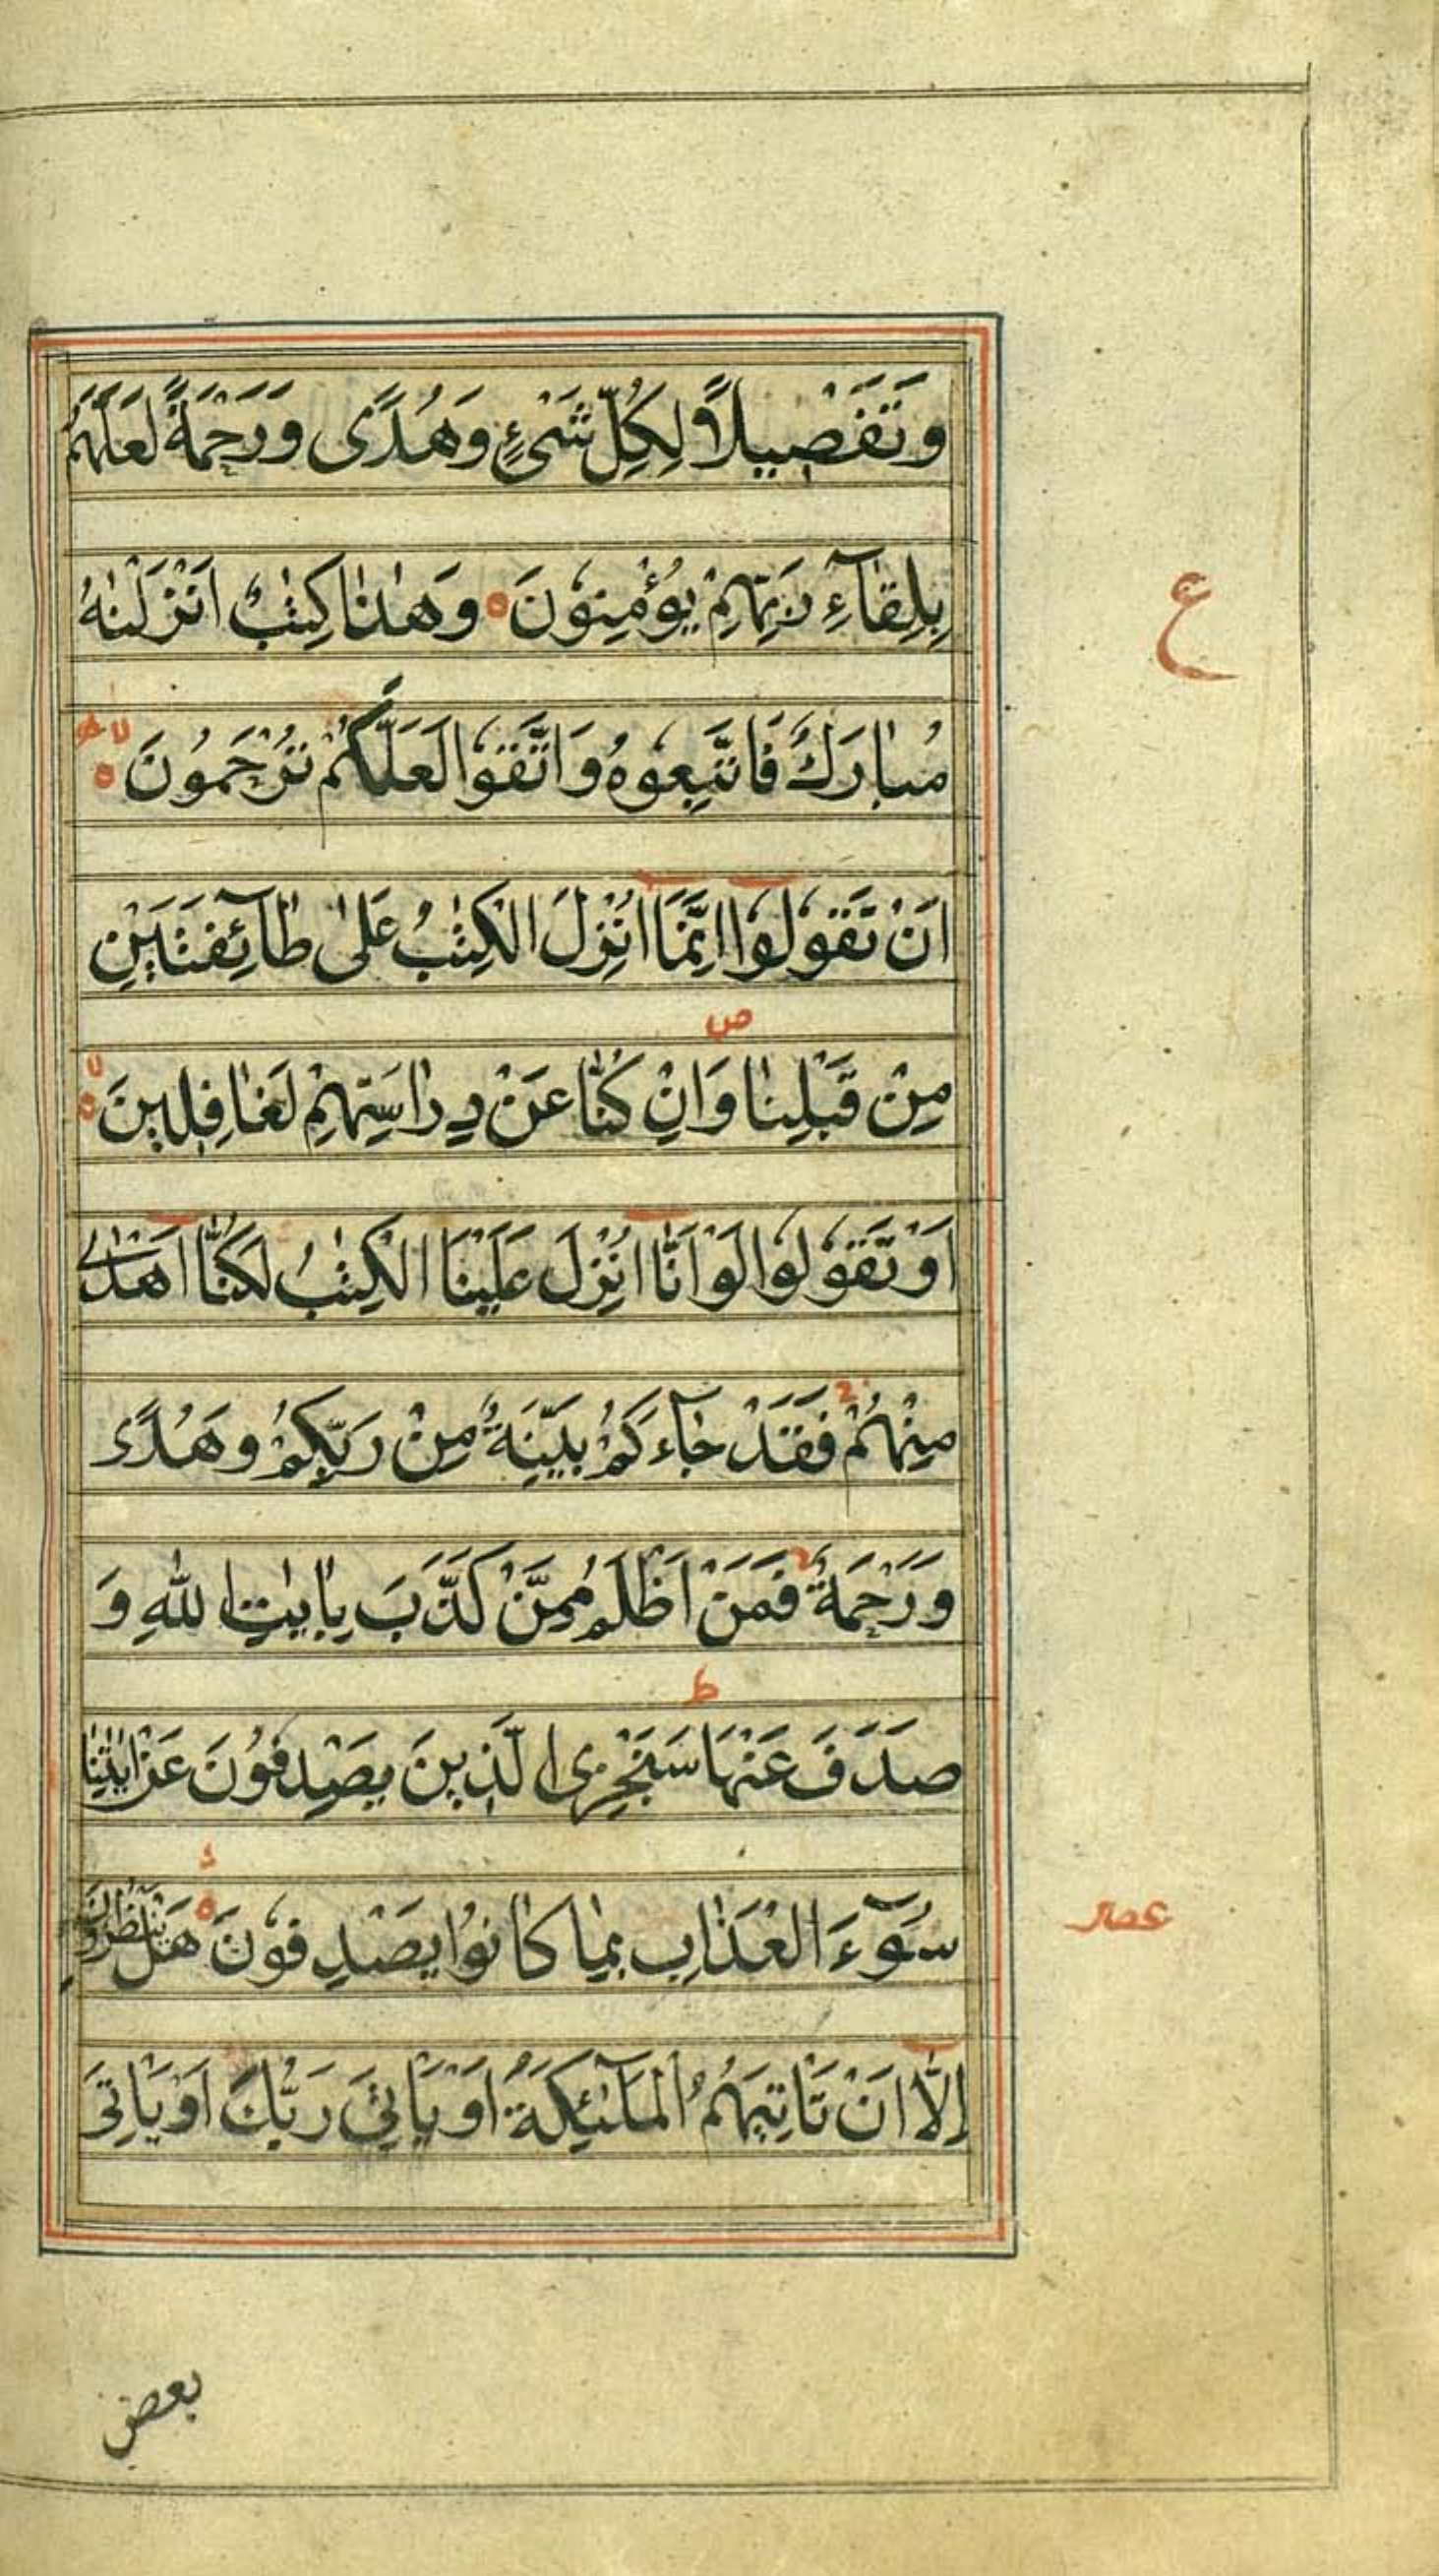 وَتَفْصِيلًا لِكُلِّ شَىْءٍ وَهُدًى وَرَحْمَةً لَعَلَّهُمْ
بِلِقَآءِ رَبِّهِمْ يُؤْمِنُونَ ۝ وَهٰذَا كِتٰبٌ اَنْزَلْنٰهُ
ع
مُبَارَكٌ فَاتَّبِعُوهُ وَاتَّقُوا لَعَلَّكُمْ تُرْحَمُونَ ۝ لا
اَنْ تَقُولُوٓا اِنَّمَآ اُنْزِلَ الْكِتٰبُ عَلٰى طَآئِفَتَيْنِ
مِنْ قَبْلِنَا ص وَاِنْ كُنَّا عَنْ دِرَاسَتِهِمْ لَغَافِلِينَ ۝ لا
اَوْ تَقُولُوا لَوْ اَنَّآ اُنْزِلَ عَلَيْنَا الْكِتٰبُ لَكُنَّآ اَهْدٰى
مِنْهُمْ فَقَدْ جَآءَكُمْ بَيِّنَةٌ مِنْ رَبِّكُمْ وَهُدًى
وَرَحْمَةٌ فَمَنْ اَظْلَمُ مِمَّنْ كَذَّبَ بِاٰيٰتِ اللّٰهِ وَ
صَدَفَ عَنْهَا ط سَنَجْزِى الَّذِينَ يَصْدِفُونَ عَنْ اٰيٰتِنَا
سُوٓءَ الْعَذَابِ بِمَا كَانُوا يَصْدِفُونَ ۝ هَلْ يَنْظُرُونَ
عشر
اِلَّآ اَنْ تَاْتِيَهُمُ الْمَلٰٓئِكَةُ اَوْ يَاْتِىَ رَبُّكَ اَوْ يَاْتِىَ
بعض